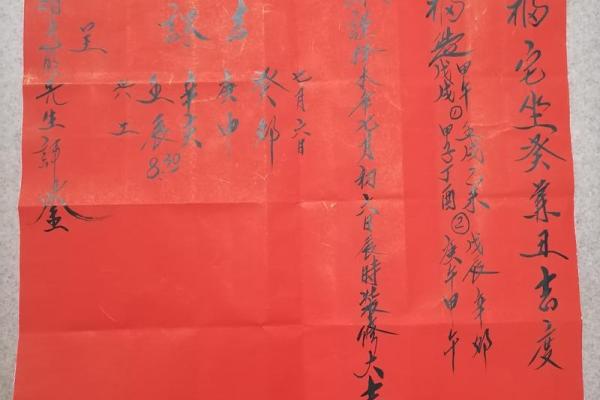 福宅坐癸兼丑吉度
福造
甲午 壬戌 乙未 戊辰 辛卯
戊戌① 甲子 丁酉 ② 庚午 甲午
本年七月初六日辰時装修大吉
七月六日
癸卯
吉 庚申
課 辛亥
壬辰
8.30
兴工
呈
先生評鉴